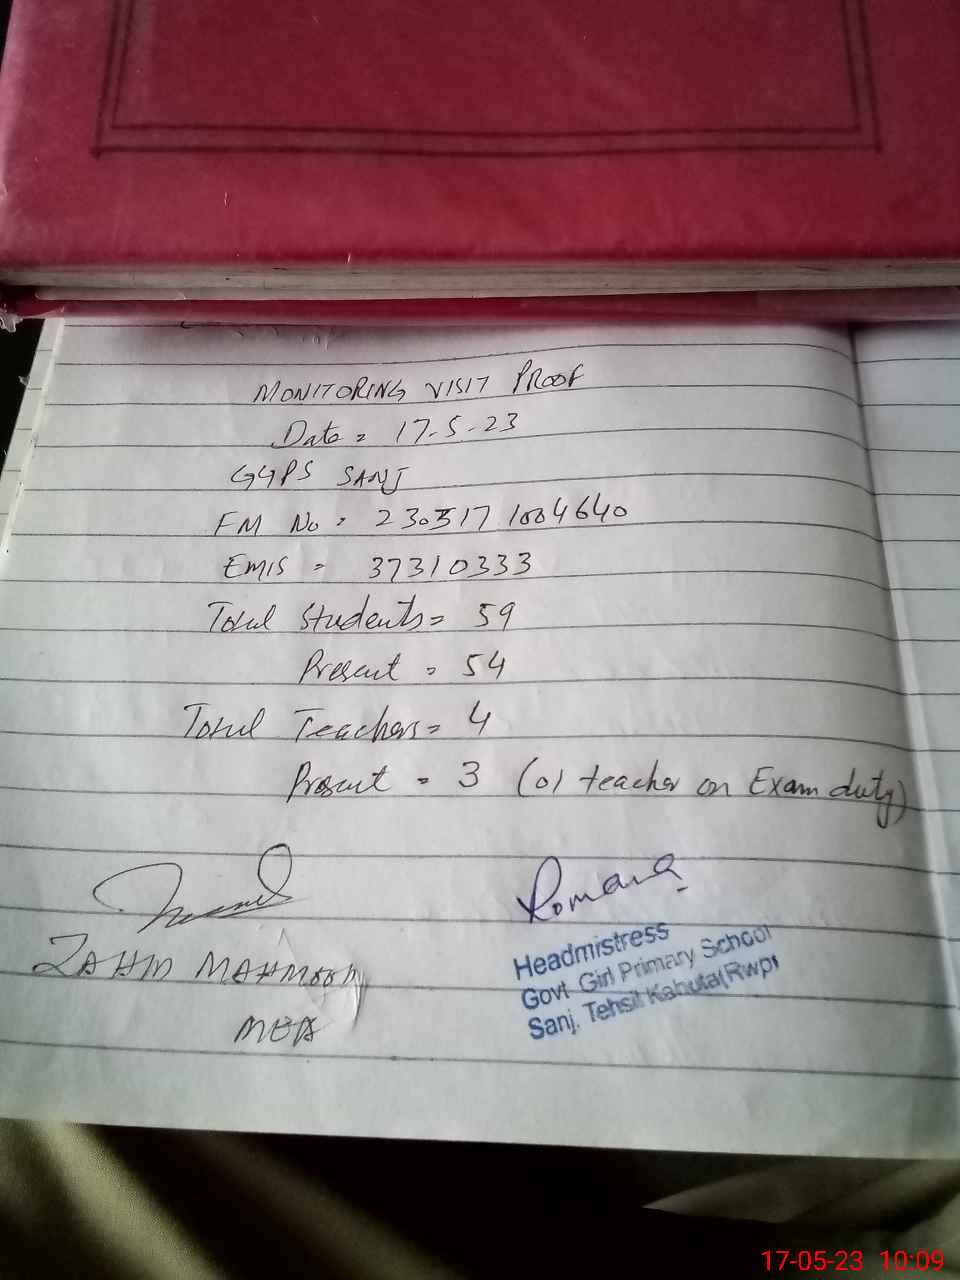 MONITORING VISIT PROOF
Date = 17-5-23
GGPS SANJ
FM No = 230517 1004640
EMIS = 37310333
Total Students = 59
Present = 54
Total Teachers = 4
Present = 3 (01 teacher on Exam duty)
Romana
MAHMOOD
MEA
Headmistress
Govt Girl Primary School
Sanj. Tehsil Kahuta(Rwp)
17-05-23 10:09